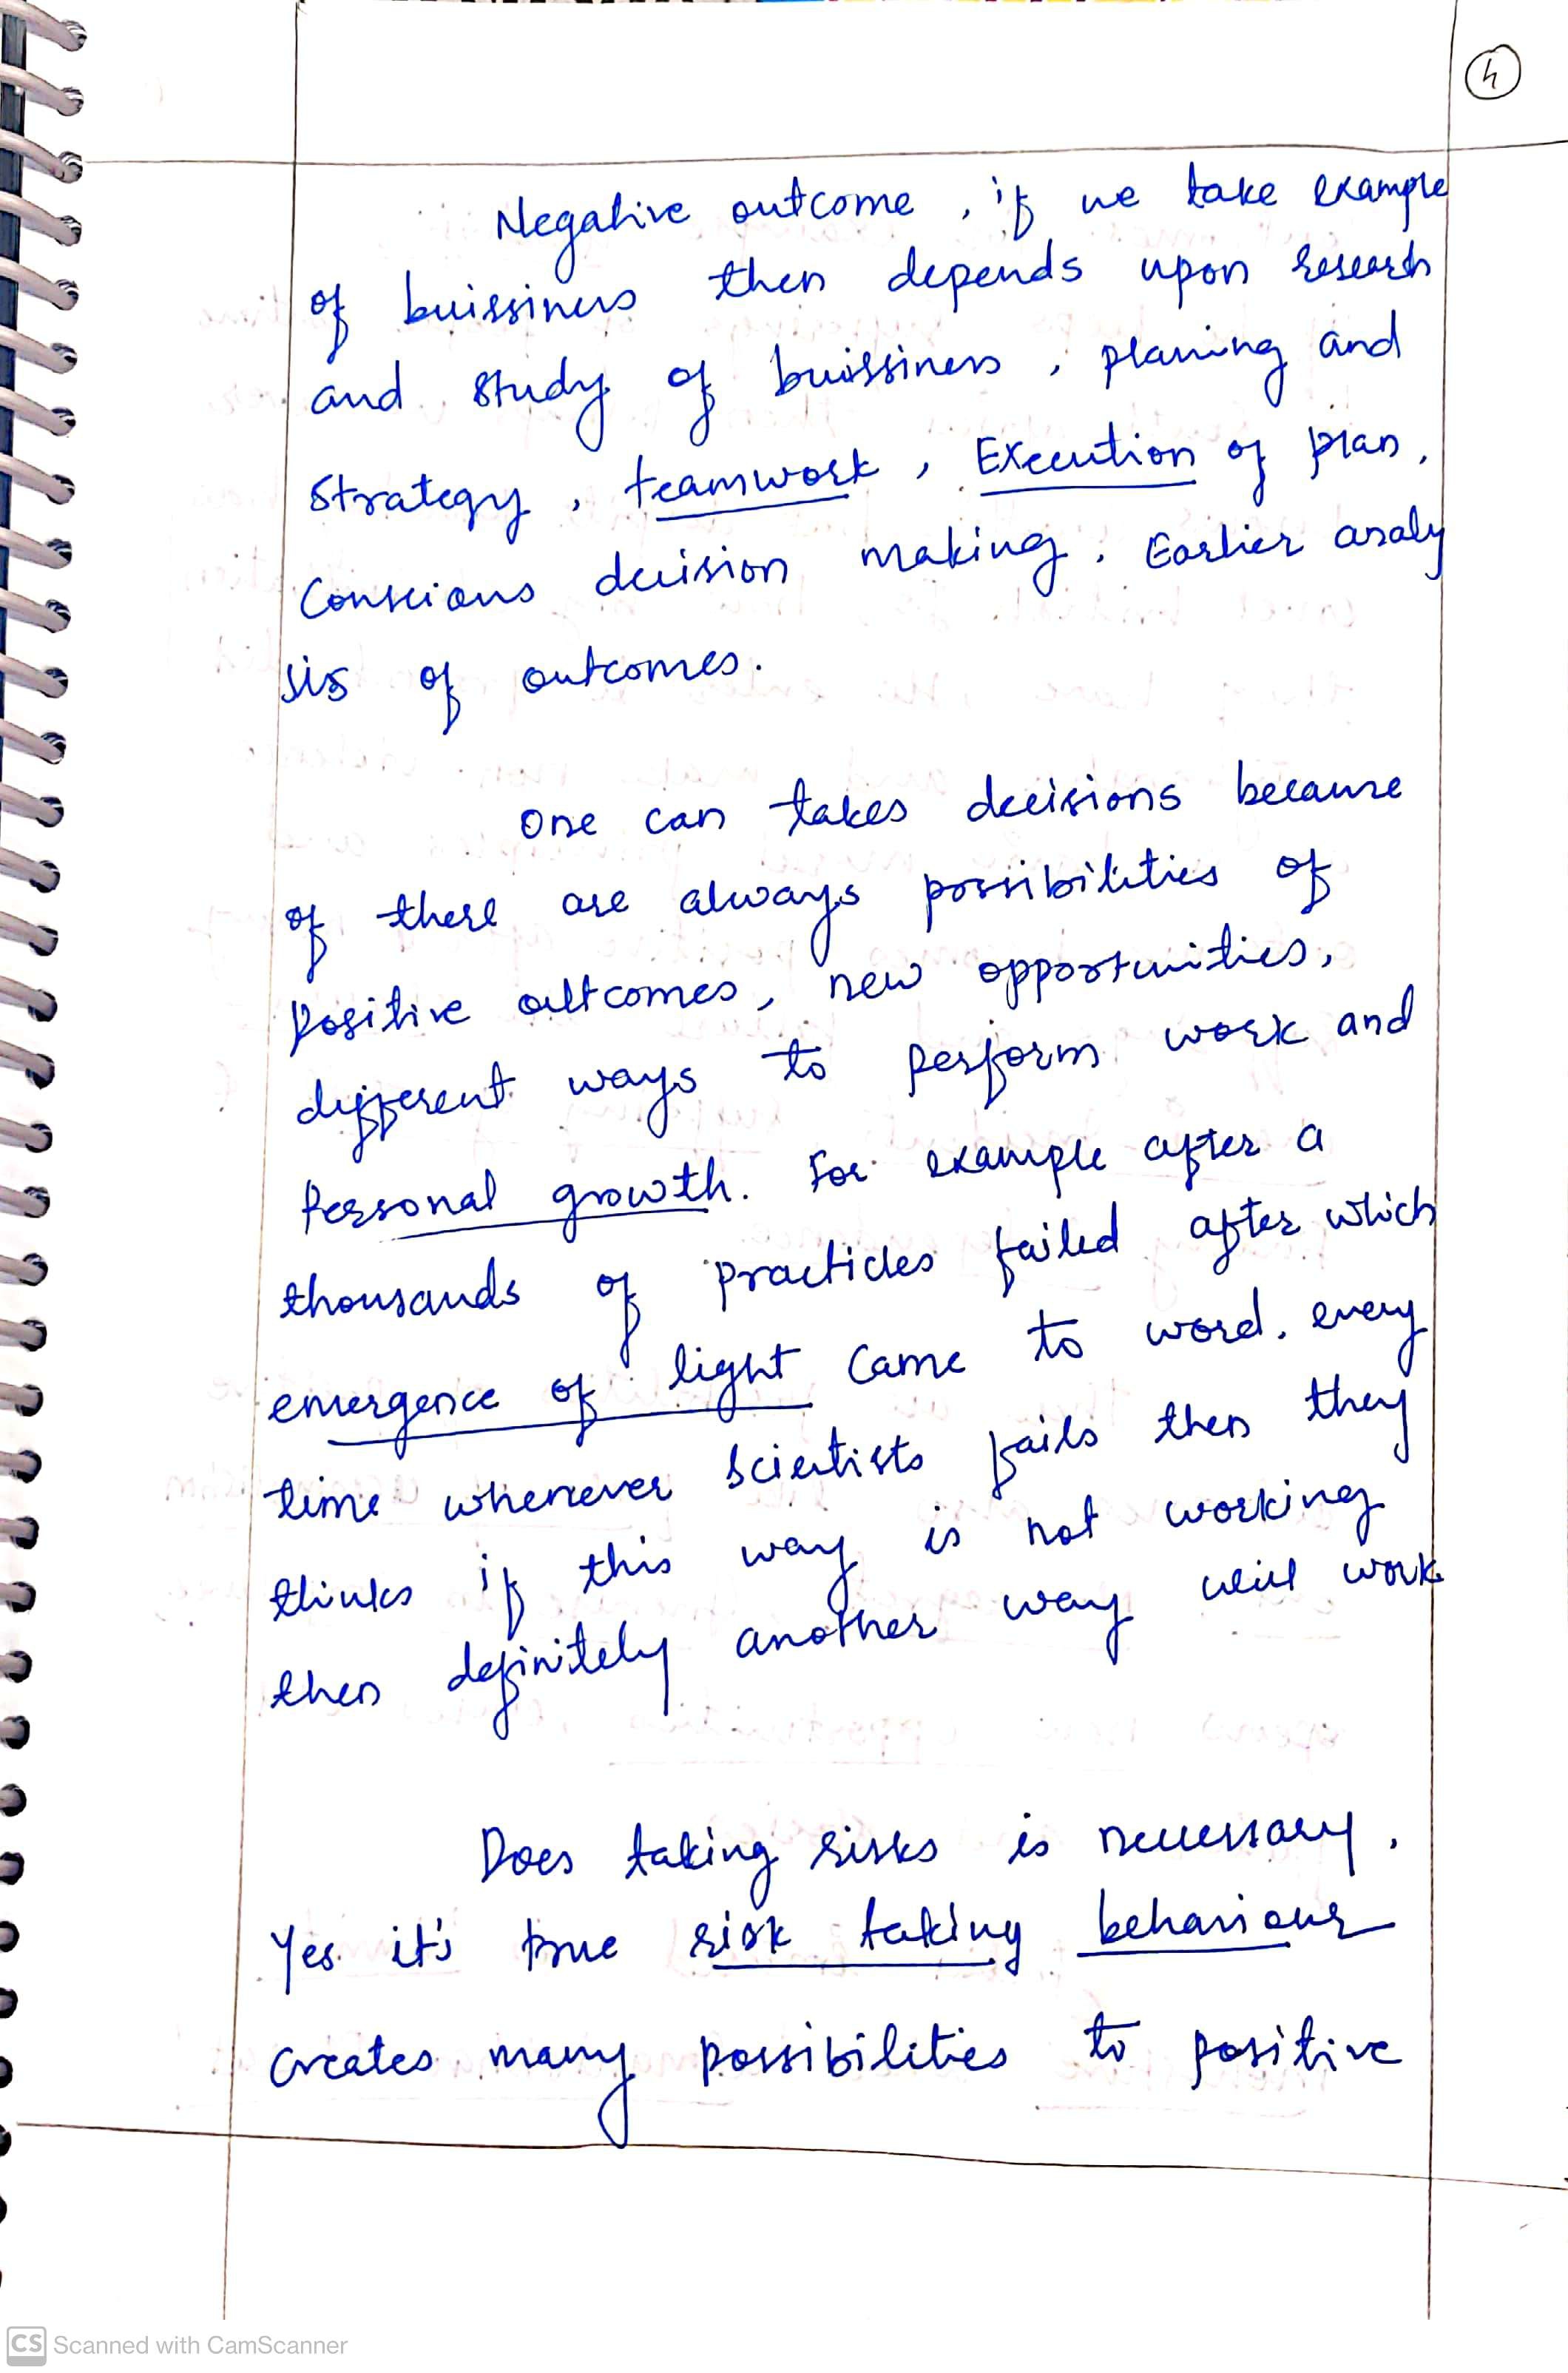 4
Negative outcome, if we take example
of buissiness then depends upon research
and study of buissiness, planing and
Strategy, teamwork, Execution of plan,
Conscious decision making, Earlier analy
sis of outcomes.
One can takes decisions because
of there are always possibilities of
positive outcomes, new opportunities,
different ways to perform work and
Personal growth. For example after a
thousands of practicles failed after which
emergence of light came to word, every
time whenever scientists fails then they
thinks if this way is not working
then definitely another way will work
Does taking risks is necessary,
Yes it's true risk taking behaviour
creates many possibilities to positive
CS Scanned with CamScanner